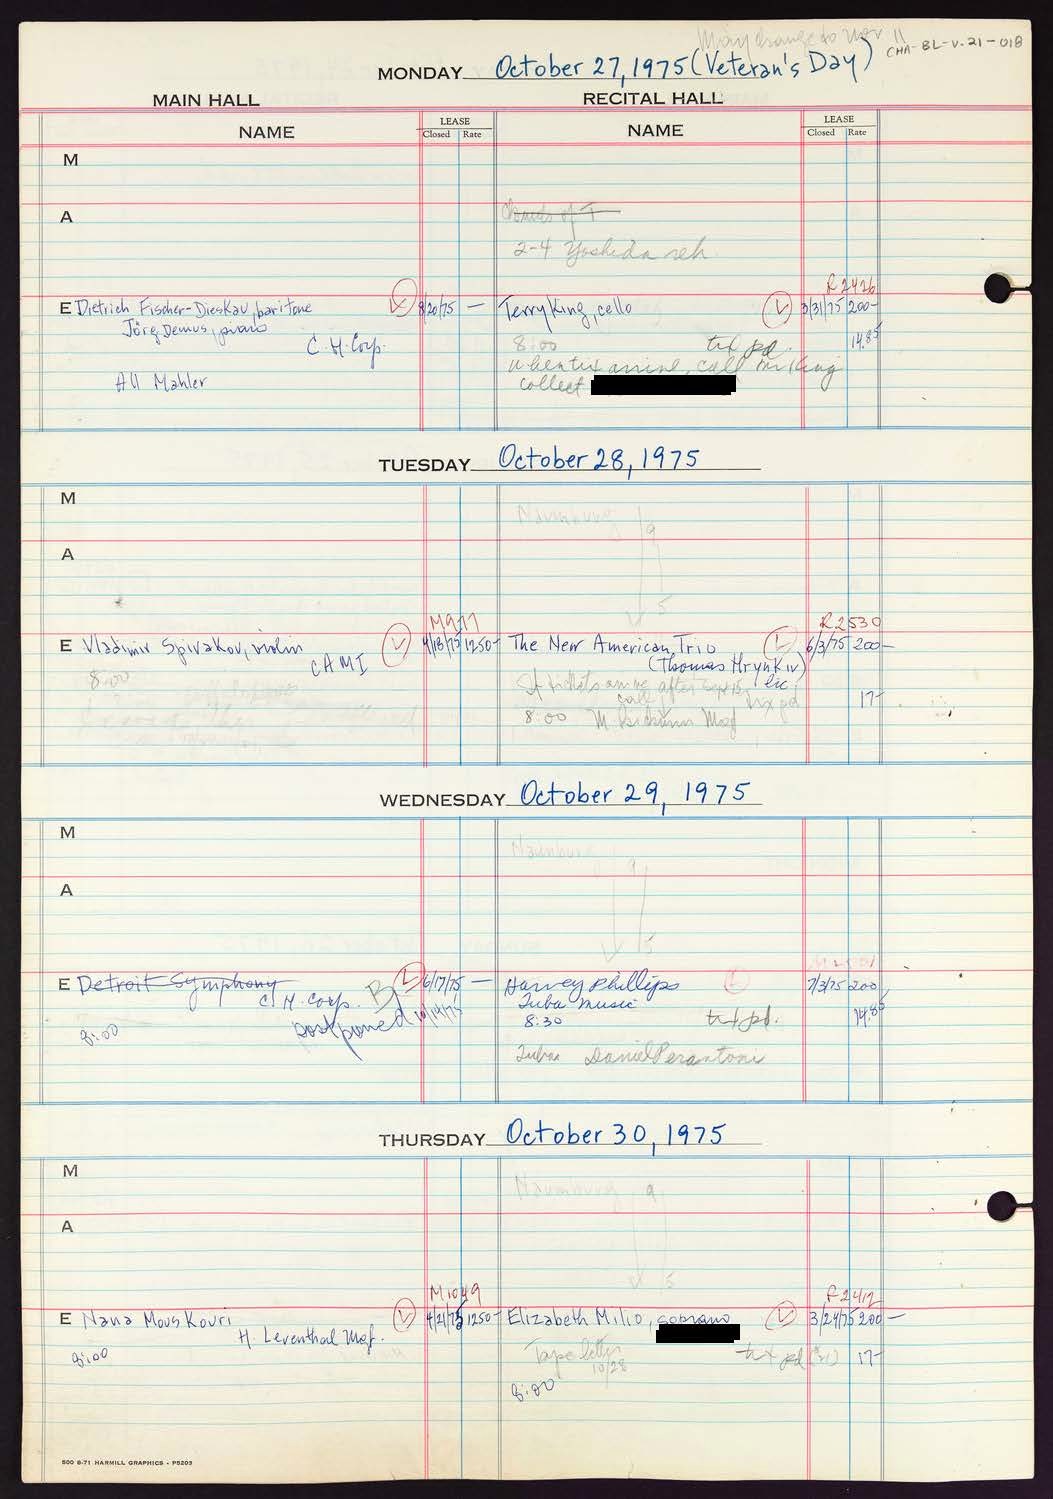 May change to Nov 11
CHA-BL-V-21-018
MONDAY October 27, 1975 (Veteran's Day)
MAIN HALL RECITAL HALL
NAME LEASE Closed Rate NAME LEASE Closed Rate
M
A
Chamb of T
2-4 Yoshida reh.
R2426
E Dietrich Fischer-Dieskau, baritone L 8/20/75 — Terry King, cello L 3/31/75 200-
Jörg Demus, piano
C.H. Corp.
8:00 tix pd. 14.85
when tix arrive, call Mr King
collect
All Mahler
TUESDAY October 28, 1975
M
Naumburg 9
A
5
M977 R2530
E Vladimir Spivakov, violin L 4/18/75 1250- The New American Trio L 6/3/75 200-
CAMI (Thomas Hrynkiv)
8:00
If tickets arrive after Sept 15 lic
call tix pd 17-
8:00 Mgt
WEDNESDAY October 29, 1975
M
Naumburg 9
A
5
E Detroit Symphony L 6/17/75 — Harvey Phillips L 7/3/75 200
C.H. Corp. Tuba Music
postponed 10/14/75
8:00 8:30 tix pd. 14.85
Tuba Daniel Perantoni
THURSDAY October 30, 1975
M
Naumburg 9
A
5
M1049 R2412
E Nana Mouskouri L 4/21/75 1250- Elizabeth Milio, soprano L 3/24/75 200-
H. Leventhal Mgt.
8:00 Tape letter tix pd 17-
10/28
8:00
500 8-71 HARMILL GRAPHICS - P5203